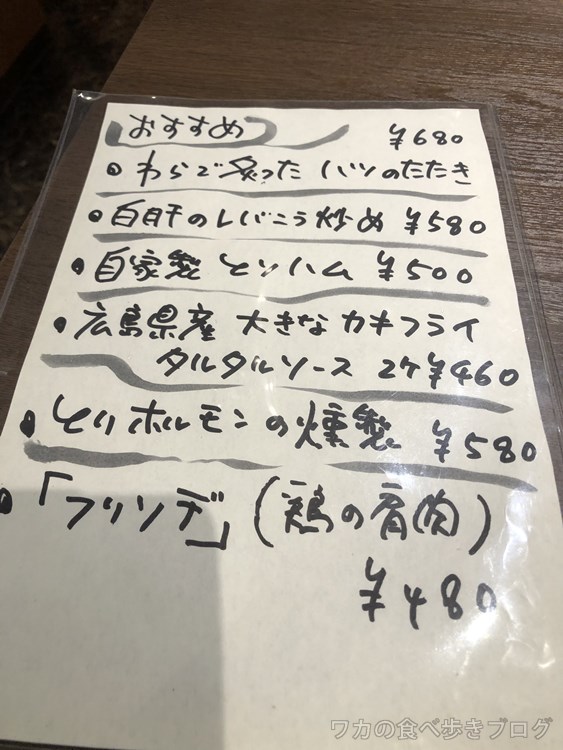 おすすめ
¥680
• わらで炙った ハツのたたき
• 白肝のレバニラ炒め ¥580
• 自家製 とりハム ¥500
• 広島県産 大きなカキフライ
タルタルソース 2ケ¥460
• とりホルモンの燻製 ¥580
• 「フリソデ」(鶏の肩肉)
¥480
ワカの食べ歩きブログ